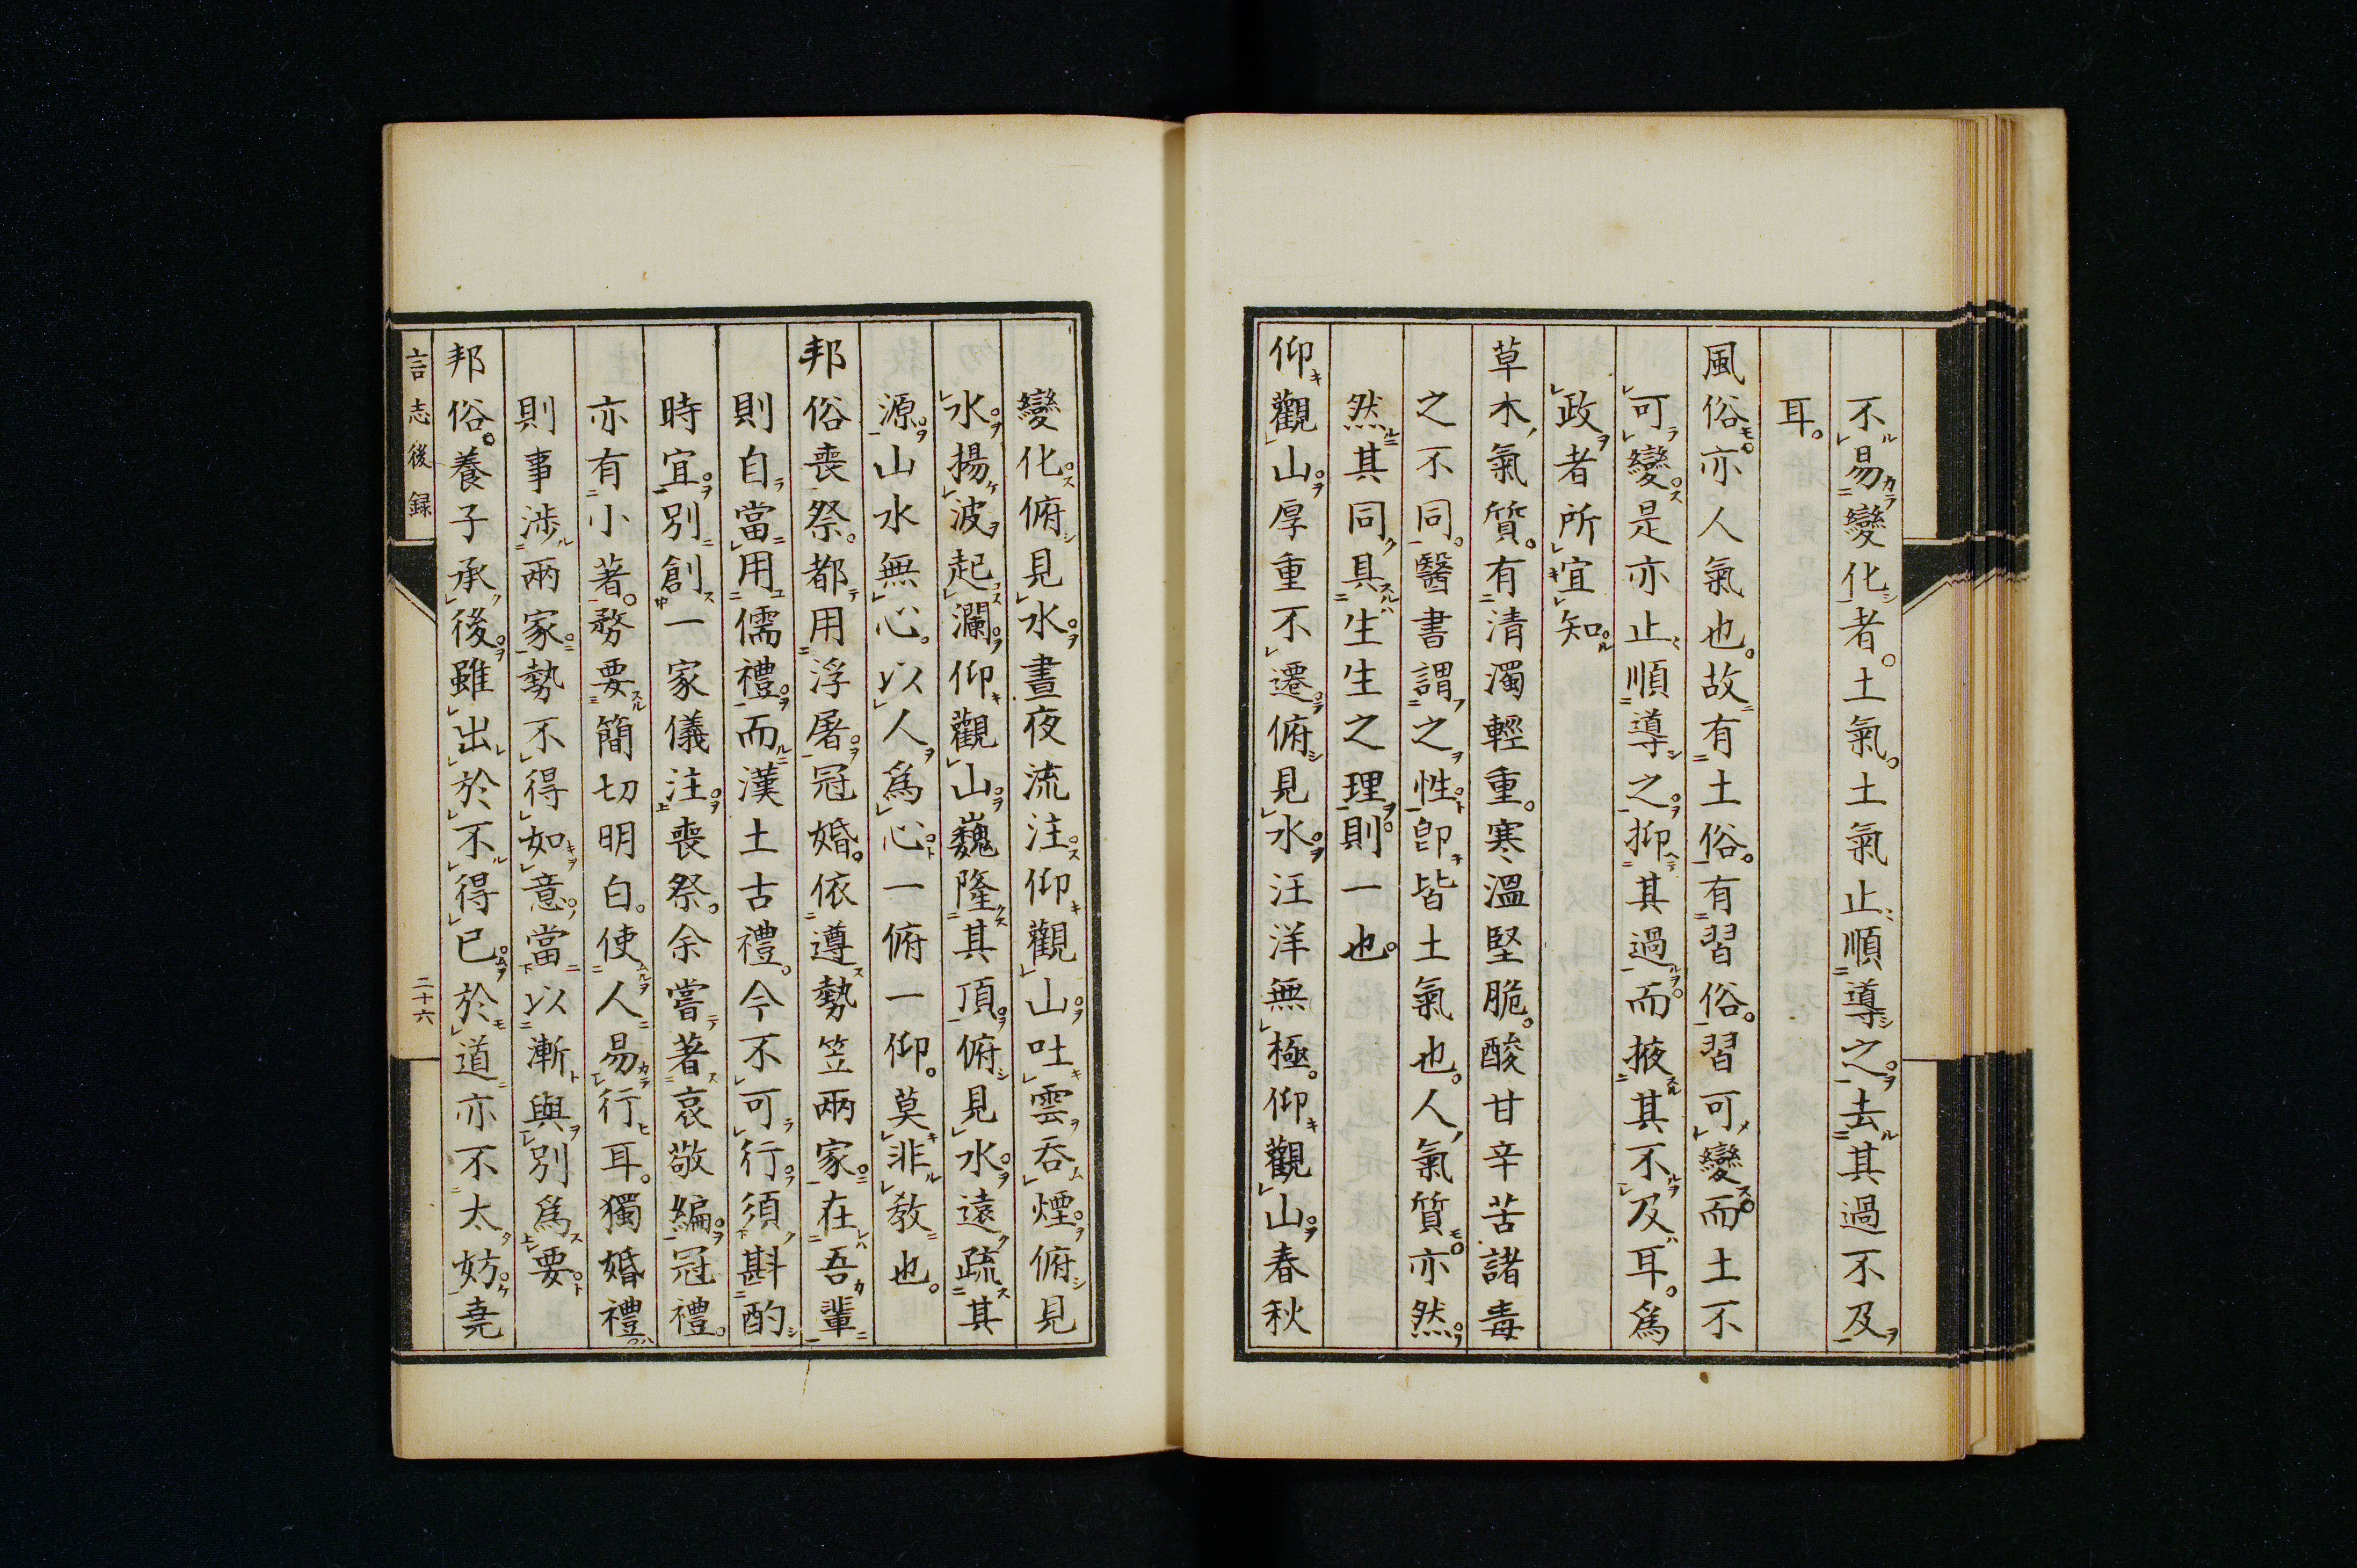 不易變化者。土氣。土氣止順導之。去其過不及
耳。
風俗亦人氣也。故有土俗。有習俗。習可變而土不
可變。是亦止順導之。抑其過。而掖其不及耳。爲
政者所宜知
草木氣質。有清濁輕重。寒溫堅脆。酸甘辛苦諸毒
之不同。醫書謂之性。卽皆土氣也。人氣質亦然。
然其同具生生之理。則一也。
仰觀山。厚重不遷。俯見水。汪洋無極。仰觀山。春秋
變化。俯見水。晝夜流注。仰觀山。吐雲吞煙。俯見
水。揚波起瀾。仰觀山。巍隆其頂。俯見水。遠疏其
源。山水無心。以人爲心。一俯一仰。莫非敎也。
邦俗喪祭。都用浮屠。冠婚。依遵勢笠兩家。在吾輩
則自當用儒禮。而漢土古禮。今不可行。須斟酌
時宜。別創一家儀注。喪祭。余嘗著哀敬編。冠禮。
亦有小著。務要簡切明白。使人易行耳。獨婚禮。
則事涉兩家。勢不得如意。當以漸與別爲要。
邦俗。養子承後。雖出於不得已。於道亦不太妨。堯
言志後録
二十六